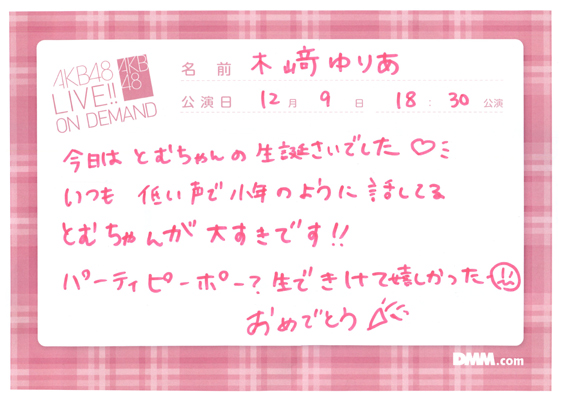 AKB48
LIVE!!
ON DEMAND
AKB
48
名前 木﨑ゆりあ
公演日 12月 9日 18:30公演
今日は とむちゃんの 生誕さいでした♡
いつも 低い声で 少年のように 話してる
とむちゃんが 大すきです!!
パーティピーポー?生できけて嬉しかった
おめでとう
DMM.com